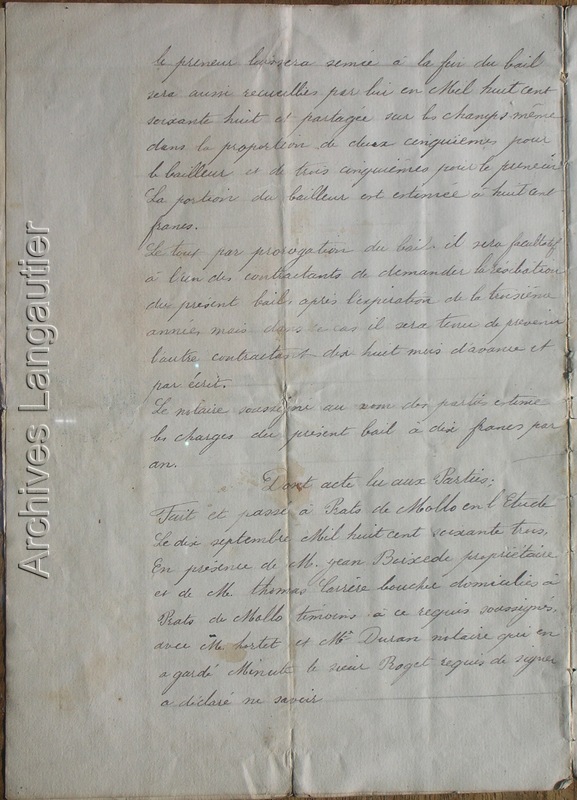 le preneur laissera semée à la fin du bail
sera aussi recueillies par lui en Mil huit cent
soixante huit et partagée sur les champs même
dans la proportion de deux cinquièmes pour
le bailleur et de trois cinquièmes pour le preneur
La portion du bailleur est estimée à huit cent
francs.
Le tout par prorogation du bail. il sera facultatif
à l'un des contractants de demander la résiliation
du présent bail, après l'expiration de la troisième
année, mais dans ce cas il sera tenu de prévenir
l'autre contractant dix huit mois d'avance et
par écrit.
Le notaire soussigné au nom des parties estime
les charges du présent bail à dix francs par
an.
Dont acte lu aux Parties:
Fait et passé à Prats de Mollo en l'Etude
Le dix septembre Mil huit cent soixante trois,
En présence de M. jean Boixede propriétaire
et de M. thomas Carrère boucher domiciliés à
Prats de Mollo témoins à ce requis soussignés.
avec M. hortet et Me Duran notaire qui en
a gardé Minute le sieur Roget requis de signer
a déclaré ne savoir
Archives Langautier